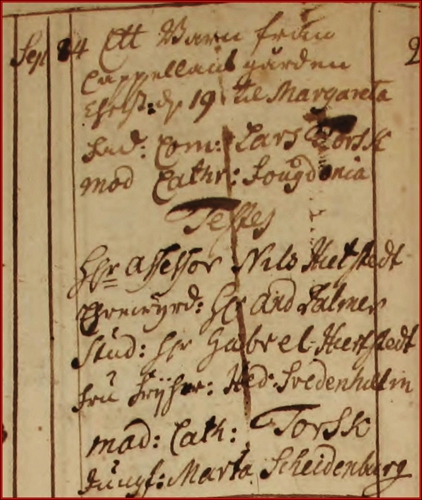 Sept 24 Ett Barn från
Cappellans gården
19 til Margareta
fad: Com: Lars Torsk
mod Cathr: Fougdonia
Testes
Hr assessor Nils Hiertstedt
Hr And Palmer
Stud: Hr Gabriel Hiertstedt
Fru Hed: Svedenhielm
mad: Cath: Torsk
Jungf: Marta Scheidenburg